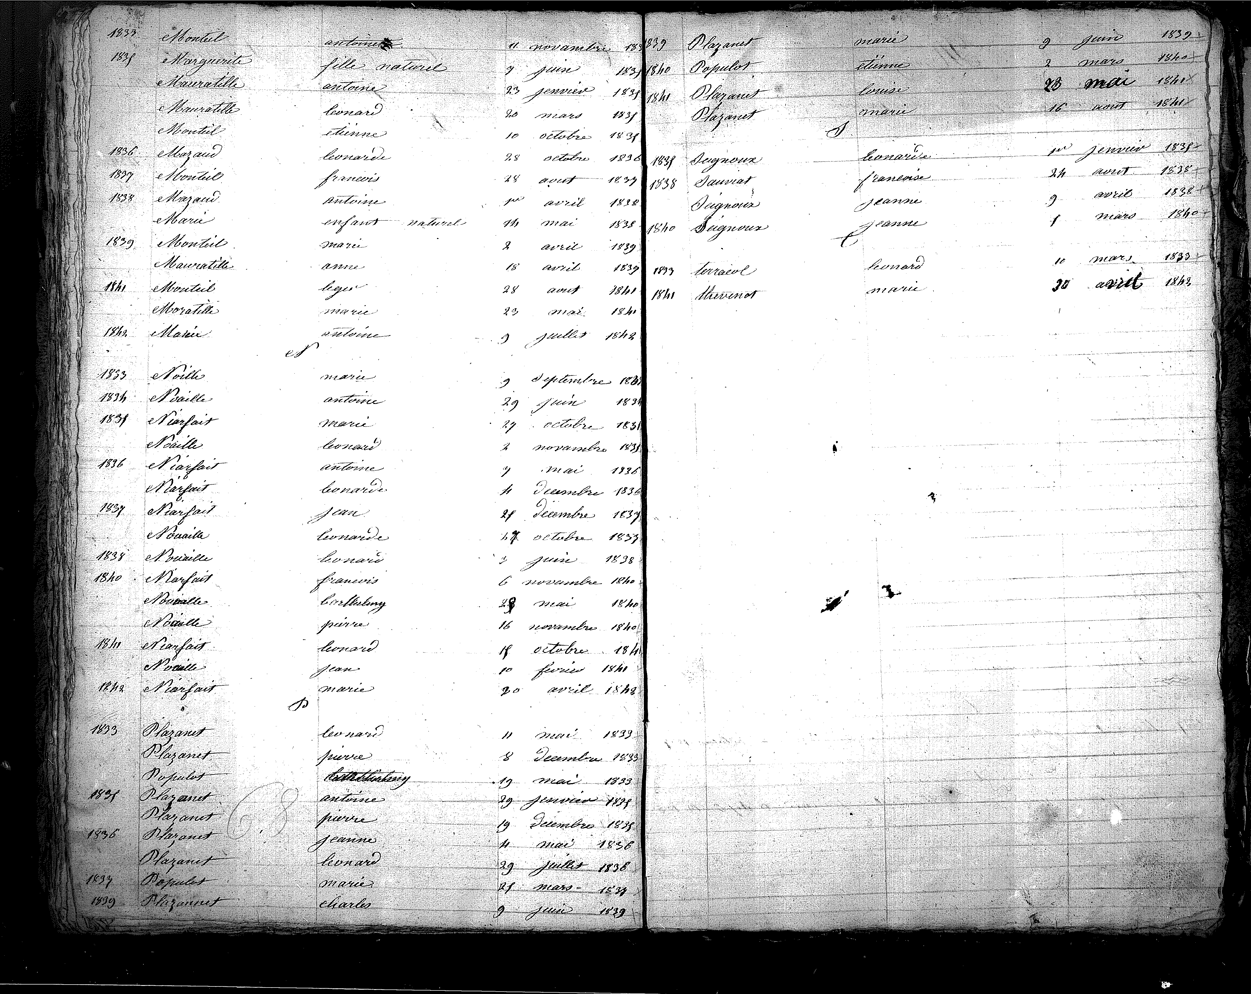 1833 Monteil antoine 11 novembre 183
1835 Marguerite fille naturel 7 juin 1835
Mauratille antoine 23 janvier 1835
Mauratille leonard 20 mars 1835
Monteil etienne 10 octobre 1835
1836 Mazaud leonarde 28 octobre 1836
1837 Monteil francois 28 aout 1837
1838 Mazaud antoine 1er avril 1838
Marie enfant naturel 14 mai 1838
1839 Monteil marie 2 avril 1839
Mauratille anne 18 avril 1839
1841 Monteil leger 28 aout 1841
Moratille marie 23 mai 1841
1842 antoine 9 juillet 1842
N
1833 Noille marie 9 septembre
1834 Noaille antoine 29 juin 183
1835 Niarfait marie 27 octobre 1835
Noaille leonard 2 novembre 1835
1836 Niarfait antoine 7 mai 1836
Niarfait leonarde 4 decembre 1836
1837 Niarfait jean 25 decembre 1837
Nouaille leonarde octobre 1837
1838 Nouaille leonard 3 juin 1838
1840 Niarfait francois 6 novembre 1840
Nouaille mai 1840
Nouaille pierre 16 novembre 1840
1841 Niarfait leonard 15 octobre 184
Nouaille jean 10 fevrier 1841
1842 Niarfait marie 20 avril 1842
P
1833 Plazanet leonard 11 mai 1833
Plazanet pierre 8 decembre 1833
Populot 19 mai 1833
1835 Plazanet antoine 29 janvier 1835
Plazanet pierre 19 decembre 1835
1836 Plazanet jeanne 4 mai 1836
Plazanet leonard 29 juillet 1836
1837 Populot marie 25 mars 1837
1839 Plazannet charles 9 juin 1839
68
1839 Plazanet marie 9 juin 1839
1840 Populot etienne 2 mars 1840
1841 Plazanet louise 23 mai 1841
Plazanet marie 16 aout 1841
S
1835 Seignoux leonarde 1er janvier 1835
1838 Sauviat francoise 24 aout 1838
Seignoux jeanne 9 avril 1838
1840 Seignoux jeanne 1 mars 1840
t
1833 terracol leonard 10 mars 1833
1841 thevenot marie 30 avril 1842